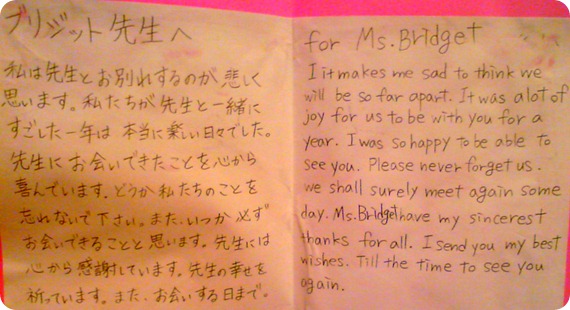 ブリジット先生へ
私は先生とお別れするのが悲しく
思います。私たちが先生と一緒に
すごした一年は本当に楽しい日々でした。
先生にお会いできたことを心から
喜んでいます。どうか私たちのことを
忘れないで下さい。また、いつか必ず
お会いできることと思います。先生には
心から感謝しています。先生の幸せを
祈っています。また、お会いする日まで。
for Ms. Bridget
I it makes me sad to think we
will be so far apart. It was a lot of
joy for us to be with you for a
year. I was so happy to be able to
see you. Please never forget us.
we shall surely meet again some
day. Ms. Bridget have my sincerest
thanks for all. I send you my best
wishes. Till the time to see you
again.